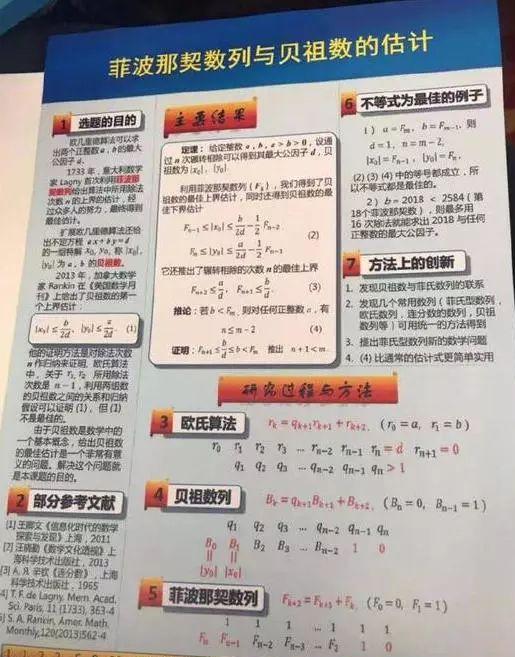 菲波那契数列与贝祖数的估计
1 选题的目的
欧几里德算法可以求
出两个正整数 a , b 的最大
公因子 d.
1733 年，意大利数学
家 Lagny 首次利用菲波那
契数列给出算法中所用除法
次数 n 的上界的估计，经
过众多人的努力，最终得到
最佳估计。
扩展欧几里德算法还给
出不定方程 ax+by=d
的一组特解 x₀, y₀, 称 |x₀|,
|y₀| 为 a , b 的贝祖数。
2013 年，加拿大数学
家 Rankin 在《美国数学月
刊》上给出了贝祖数的第一
个上界估计：
|x₀| ≤ b/2d, |y₀| ≤ a/2d. (1)
他的证明方法是对除法次数
n 作归纳来证明. 欧几里算法
中，关于 r₁, r₂ 所用除法
次数是 n − 1，利用两组数
的贝祖数之间的关系和归纳
假设可以证明 (1)，但 (1)
不是最佳的。
由于贝祖数是数学中的
一个基本概念，给出贝祖数
的最佳估计是一个非常有意
义的问题。解决这个问题就
是本课题的目的。
2 部分参考文献
[1] 王卿文《信息化时代的数学
探索与发现》上海，2011
[2] 汪晓勤《数学文化透视》上
海科学技术出版社，2013
[3] A. Я. 辛钦《连分数》，上海
科学技术出版社，1965
4] T. F. de Lagny, Mem. Acad.
Sci. Paris, 11 (1733), 363-4
5] S. A. Rankin, Amer. Math.
Monthly,120(2013)562-4
主要结果
定理：给定整数 a , b, a > b > 0，设通
过 n 次辗转相除可以得到其最大公因子 d，贝
祖数为 |x₀|, |y₀|.
利用菲波那契数列 {Fₖ}，我们得到了贝
祖数的最佳上界估计，同时还得到贝祖数的最
佳下界估计
Fₙ₋₁ ≤ |x₀| ≤ b/2d − 1/2 Fₙ₋₂
(2)
Fₙ ≤ |y₀| ≤ a/2d − 1/2 Fₙ₋₁
它还推出了辗转相除的次数 n 的最佳上界
Fₙ₊₂ ≤ a/d, Fₙ₊₁ ≤ b/d. (3)
推论：若 b < Fₘ, 则对任何正整数 a，有
n ≤ m − 2 (4)
证明：Fₙ₊₁ ≤ b/d ≤ b < Fₘ 推出 n + 1 < m.
6 不等式为最佳的例子
1) a = Fₘ, b = Fₘ₋₁, 则
d = 1, n = m − 2,
|x₀| = Fₙ₋₁, |y₀| = Fₙ.
(2) (3) (4) 中的等号都成立，所
以不等式都是最佳的。
2) b = 2018 < 2584 (第
18个菲波那契数)，则最多用
16 次除法就能求出 2018 与任何
正整数的最大公因子。
7 方法上的创新
1. 发现贝祖数与菲氏数列的联系
2. 发现几个常用数列（菲氏型数列，
欧氏数列，连分数的数列，贝祖
数列等）可用统一的方法得到
3. 提出菲氏型数列新的数学问题
4. (4) 比通常的估计式更简单实用
研究过程与方法
3 欧氏算法 rₖ = qₖ₊₁rₖ₊₁ + rₖ₊₂, (r₀ = a, r₁ = b)
r₀ r₁ r₂ r₃ ... rₙ₋₂ rₙ₋₁ rₙ = d rₙ₊₁ = 0
q₁ q₂ q₃ ... qₙ₋₂ qₙ₋₁ qₙ > 1
4 贝祖数列 Bₖ = qₖ₊₁Bₖ₊₁ + Bₖ₊₂, (Bₙ = 0, Bₙ₋₁ = 1)
q₁ q₂ q₃ ... qₙ₋₂ qₙ₋₁ qₙ
B₀ B₁ B₂ B₃ ... Bₙ₋₂ 1 0
|| ||
|y₀| |x₀|
5 菲波那契数列 Fₖ₊₂ = Fₖ₊₁ + Fₖ, (F₀ = 0, F₁ = 1)
1 1 1 ... 1 1 1
Fₙ Fₙ₋₁ Fₙ₋₂ Fₙ₋₃ ... F₂ 1 0